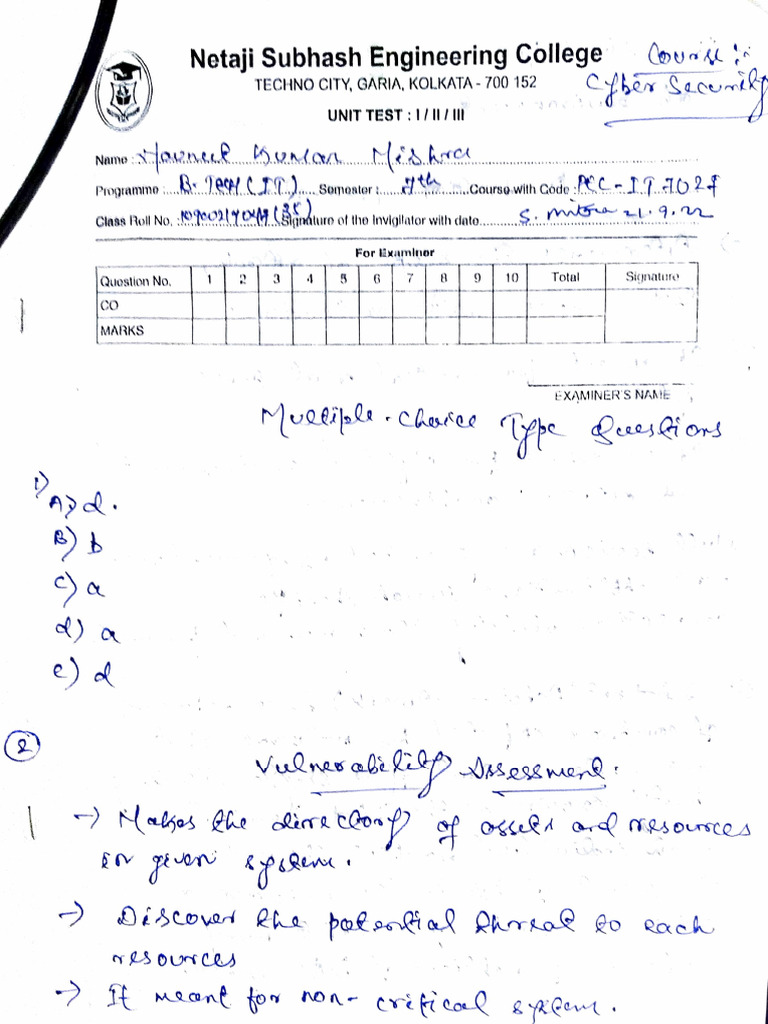 Netaji Subhash Engineering College
Course :-
TECHNO CITY, GARIA, KOLKATA - 700 152
Cyber Security
UNIT TEST : I / II / III
Name : Kumar Mishra
Programme : B. Tech (I.T.) Semester : 7th Course with Code : PCC-I.T.702
Class Roll No. (35) Signature of the Invigilator with date S. Mitra 21.9.22
For Examiner
Question No. 1 2 3 4 5 6 7 8 9 10 Total Signature
CO
MARKS
EXAMINER'S NAME
Multiple-choice Type Questions
1)
A) d.
B) b
c) a
d) a
e) d
2
Vulnerability Assessment.
→ Makes the directory of assets and resources
in given system.
→ Discover the potential threat to each
resources
→ It meant for non-critical system.